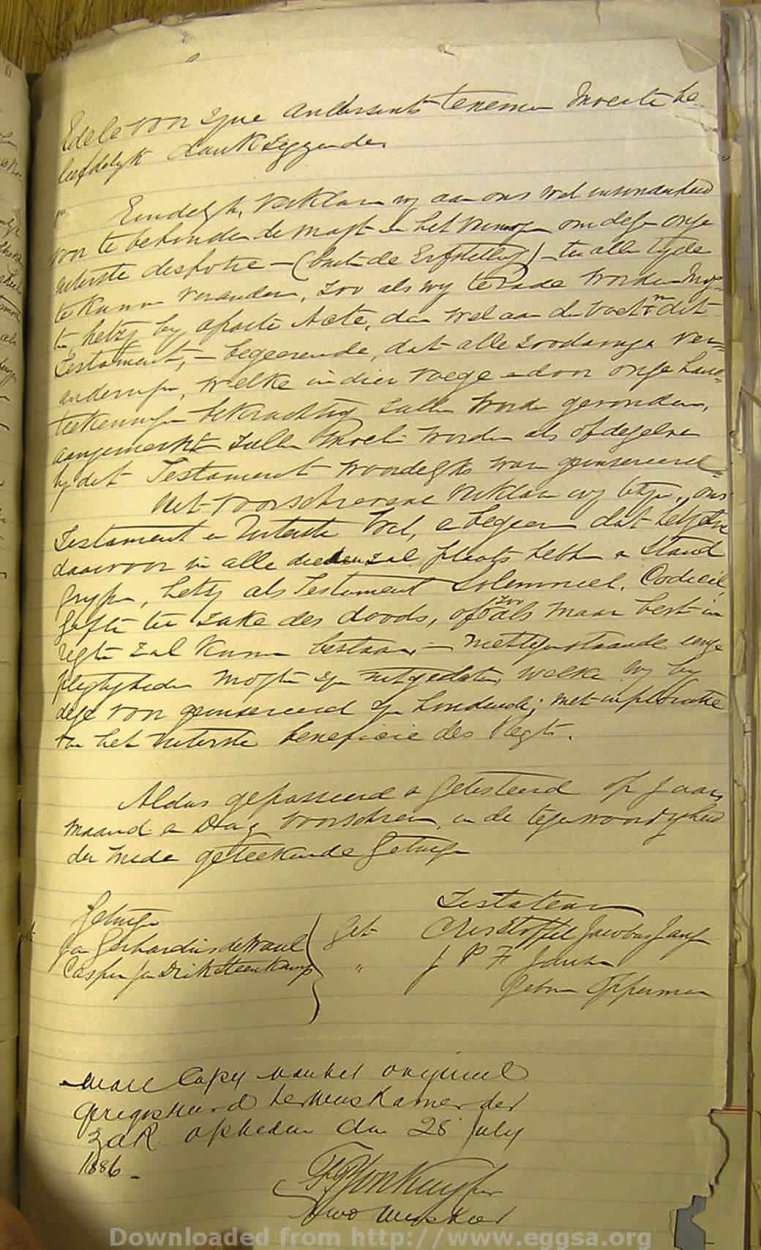 Edele voor zyne anderzints tenemen moeite be
leefdelyk dankzeggende
Eindelyk, verklaren wy aan ons wel
voor te behouden de magt en het vermogen om deze onze
uiterste dispositie – (buiten de Erfstelling) – ten allen tyde
te kunnen veranderen, zoo als wy te rade worden mog-
ten, hetzy by aparte Acte, dan wel aan de voet van dit
Testament, – begeerende, dat alle zoodanige ver-
anderingen, welke in dier voege en door onze hand-
teekeningen bekrachtig zullen worden gevonden,
aangemerkt zullen moeten worden als of dezelve
by dit Testament woordelyks waren geinsereerd
Het voorschrevene verklaren wy te zyn, ons
Testament en Uiterste Wil, en begeeren dat hetzelve
daarvoor in alle deelen zal plaats hebben en stand
grypen, hetzy als Testament Solemneel, Codicil
Gifte ter zake des doods, of zoo als maar best in
regte zal kunnen bestaan, – niettegenstaande eenige
plegtigheden mogten zyn uitgelaten, welke wy by
deze voor geinsereerd zyn houdende; met
van het uiterste beneficie des Regts.
Aldus gepasseerd en getesteerd op Jaar
maand en Dag voorschreven, in de tegenwoordigheid
der mede geteekende Getuigen
Getuigen Testateuren
Jan Gerhardus de Waal Get Christoffel Jacobus
Casper Jan Drik Steenkamp " J P F
Geboren Opperman
Ware Copy van het origineel
geregistreerd ter Weeskamer der
Z.A.R. op heden den 28 July
1886 –
Weesheer
Downloaded from http://www.eggsa.org